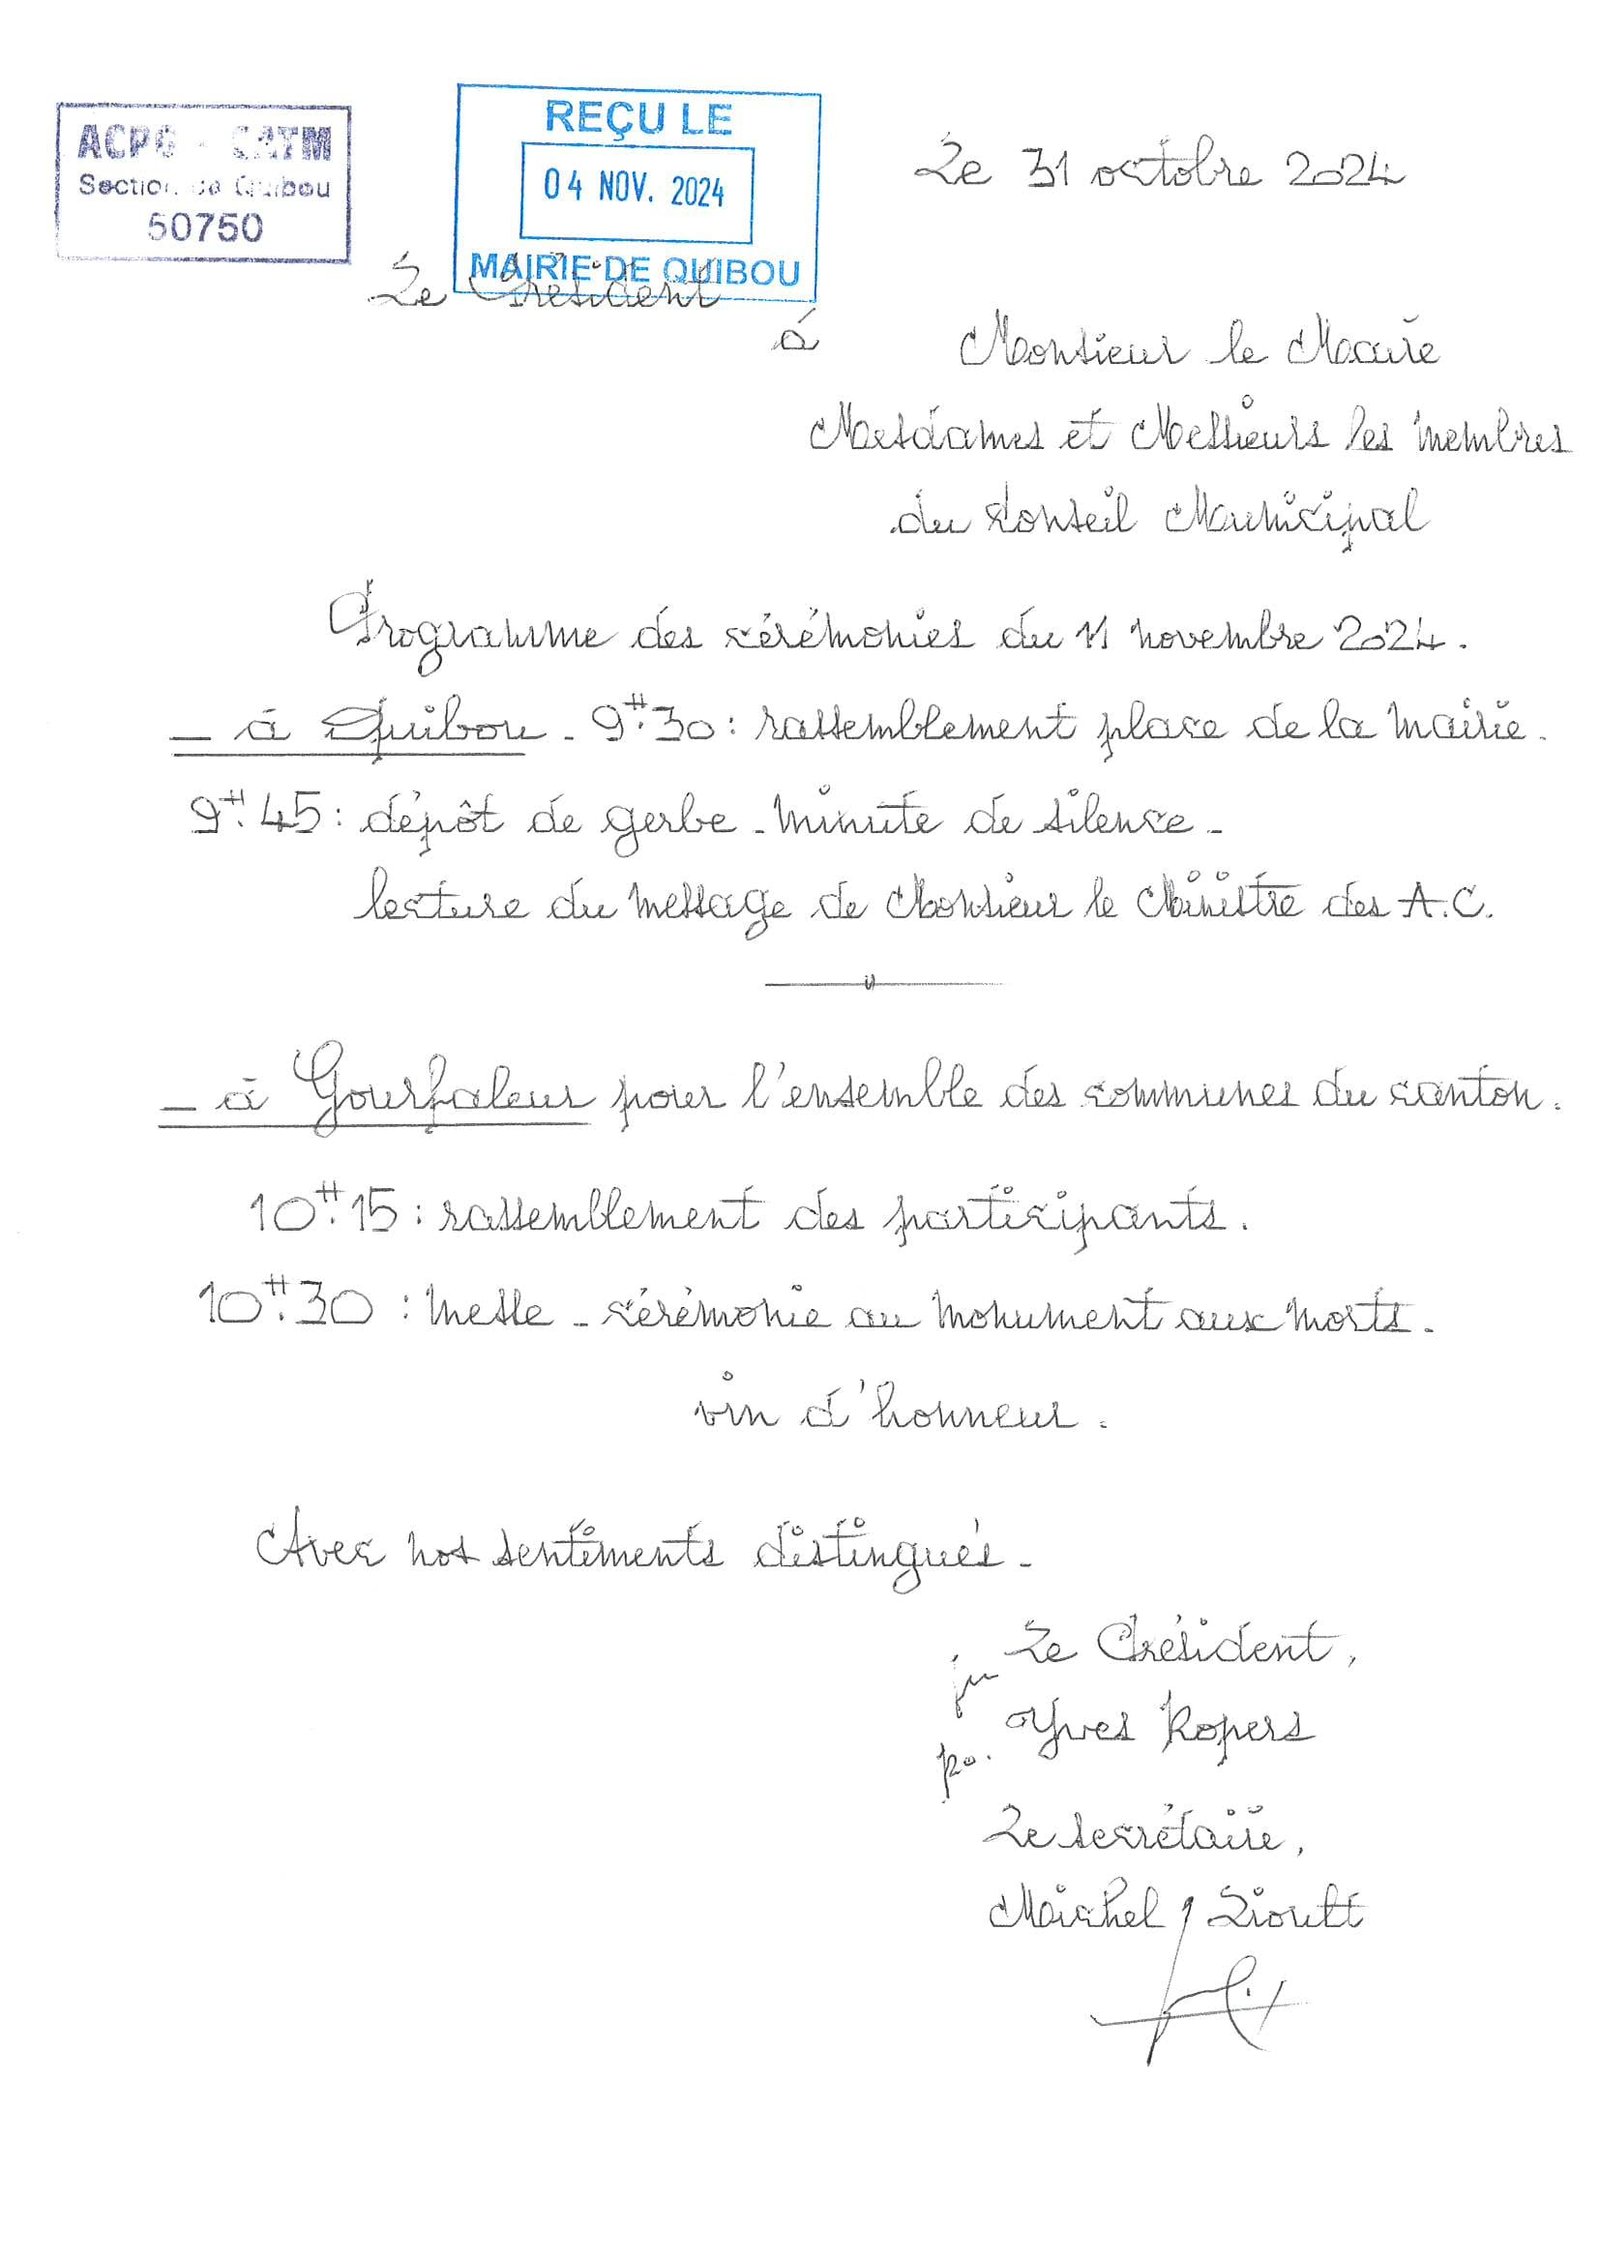 ACPG - CATM
Section de Quibou
50750
REÇU LE
04 NOV. 2024
MAIRIE DE QUIBOU
Le 31 octobre 2024
Le Président
à
Monsieur le Maire
Mesdames et Messieurs les membres
du Conseil Municipal
Programme des cérémonies du 11 novembre 2024.
- à Quibou - 9H.30 : rassemblement place de la mairie.
9H.45 : dépôt de gerbe - minute de silence -
lecture du message de Monsieur le Ministre des A.C.
- à Gourfaleur pour l'ensemble des communes du canton.
10H.15 : rassemblement des participants.
10H.30 : messe - cérémonie au monument aux morts -
vin d'honneur.
Avec nos sentiments distingués -
Le Président,
Yves Ropers
po.
Le secrétaire,
Michel Lioult